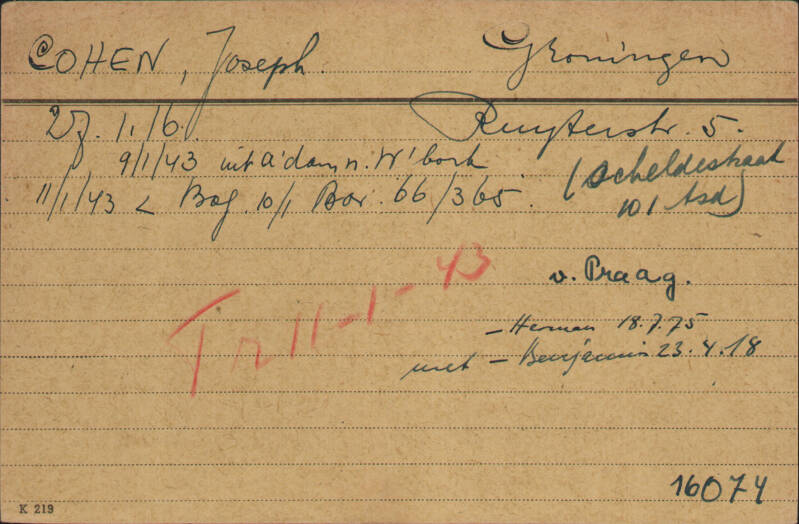 COHEN, Joseph. Groningen
27.1.16. Ruyterstr. 5.
9/1/43 uit A'dam n. W'bork (Scheldestraat
11/1/43 < Bag. 10/1 Bar. 66/365. 101 Asd)
v. Praag.
Tr 11-1-43
- Herman 18.7.75
met - Benjamin 23.4.18
16074
K 219